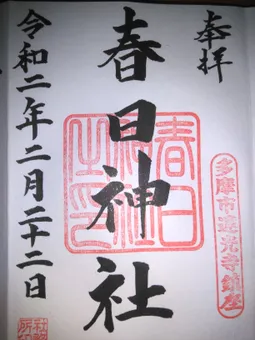 奉拝
春日神社
春日神社之印
多摩市連光寺鎮座
令和二年二月二十二日